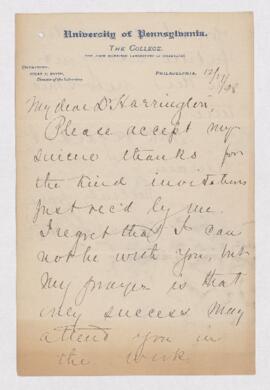 University of Pennsylvania.
THE COLLEGE.
THE JOHN HARRISON LABORATORY OF CHEMISTRY
EDGAR F. SMITH,
Director of the Laboratory
PHILADELPHIA,
My dear Dr Harrington,
Please accept my
sincere thanks for
the kind invitation
just rec'd by me.
I regret that I can
not be with you, but
my prayer is that
every success may
attend you in
the work